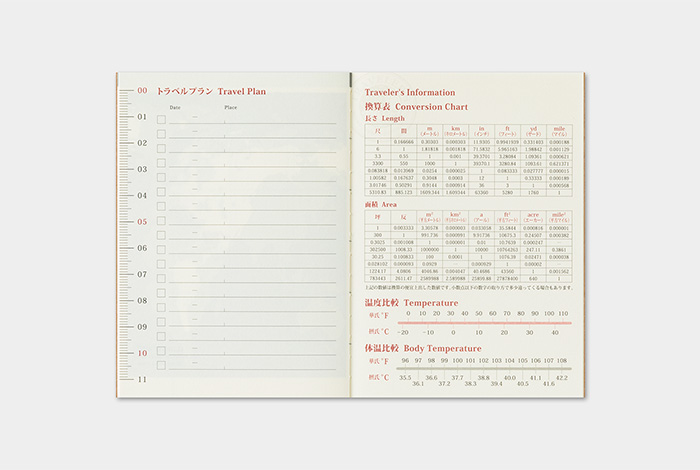 00 トラベルプラン Travel Plan
Date Place
01
02
03
04
05
06
07
08
09
10
11
Traveler's Information
換算表 Conversion Chart
長さ Length
尺 間 m km in ft yd mile
(メートル) (キロメートル) (インチ) (フィート) (ヤード) (マイル)
1 0.166666 0.30303 0.000303 11.9305 0.9941939 0.331403 0.000188
6 1 1.81818 0.001818 71.5832 5.965163 1.98842 0.001129
3.3 0.55 1 0.001 39.3701 3.28084 1.09361 0.000621
3300 550 1000 1 39370.1 3280.84 1093.61 0.621371
0.083818 0.013969 0.0254 0.000025 1 0.083333 0.027777 0.000015
1.00582 0.167637 0.3048 0.0003 12 1 0.33333 0.000189
3.01746 0.50291 0.9144 0.000914 36 3 1 0.000568
5310.83 885.123 1609.344 1.609344 63360 5280 1760 1
面積 Area
坪 反 m² km² a ft² acre mile²
(平方メートル) (平方キロメートル) (アール) (平方フィート) (エーカー) (平方マイル)
1 0.003333 3.30578 0.000003 0.033058 35.5844 0.000816 0.000001
300 1 991.736 0.000991 9.91736 10675.3 0.24507 0.000382
0.3025 0.001008 1 0.000001 0.01 10.7639 0.000247 —
302500 1008.33 1000000 1 10000 10764263 247.11 0.3861
30.25 0.100833 100 0.0001 1 1076.39 0.02471 0.000038
0.028102 0.000093 0.0929 — 0.000929 1 0.00002 —
1224.17 4.0806 4046.86 0.004047 40.4686 43560 1 0.001562
783443 2611.47 2589988 2.589988 25899.8 27878400 640 1
上記の数値は換算の便宜上出した数値です。小数点以下の数字の取り方で多少違ってくる場合もあります。
温度比較 Temperature
華氏 °F 0 10 20 30 40 50 60 70 80 90 100 110
摂氏 °C −20 −10 0 10 20 30 40
体温比較 Body Temperature
華氏 °F 96 97 98 99 100 101 102 103 104 105 106 107 108
摂氏 °C 35.5 36.6 37.7 38.8 40.0 41.1 42.2
36.1 37.2 38.3 39.4 40.5 41.6